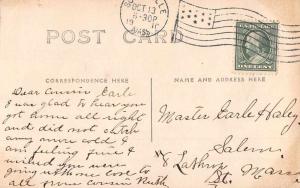 VILLE
OCT 13
8-30P
MASS.
POST CARD
ONE CENT
CORRESPONDENCE HERE
NAME AND ADDRESS HERE
Dear Cousin Earle
I was glad to hear you
got home all right
and did not catch
any more cold I
am feeling fine &
wished you were
going up home love to
all from cousin Ruth
Master Earle Haley
Salem
8 Lathrop
St. Mass